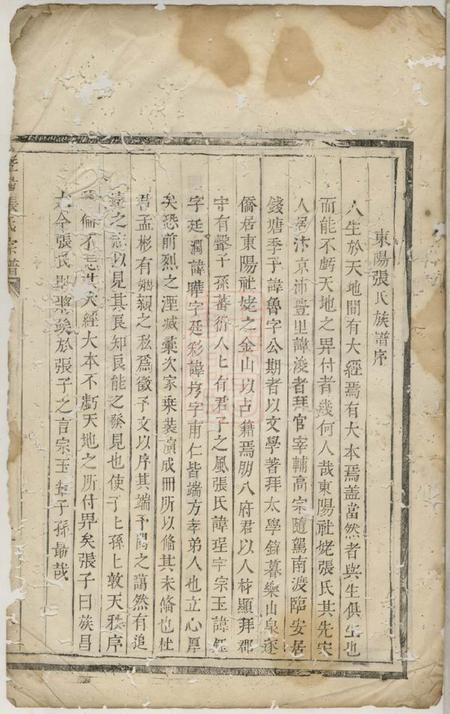 東陽張氏族譜序
人生於天地間有大經焉有大本焉蓋當然者與生俱生也
而能不虧天地之畀付者幾何人哉東陽社姥張氏其先宋
人居汴京沛豐里諱浚者拜官宰輔高宗隨駕南渡臨安居
錢塘季子諱魯字公期者以文學著拜太學錄暮樂山泉遂
僑居東陽社姥之金山以占籍焉朋八府君以人材顯拜郡
守有聲子孫蕃衍人人有君子之風張氏諱珵字宗玉諱鋞
字廷潤諱瑋字廷彩諱垿字甫仁皆端方孝弟人也立心厚
矣恐前烈之湮墜彙次家乗裝演成冊所以脩其未脩也杜
君孟彬有姻親之愛為徵予文以序其端予閱之藹然有追
遠之誠以見其良知良能之發見也使子子孫孫敦天秩序
倫不忘其大經大本不虧天地之所付畀矣張子曰族昌
大今張氏驗於張子之言宗玉子孫勗哉
張氏宗譜